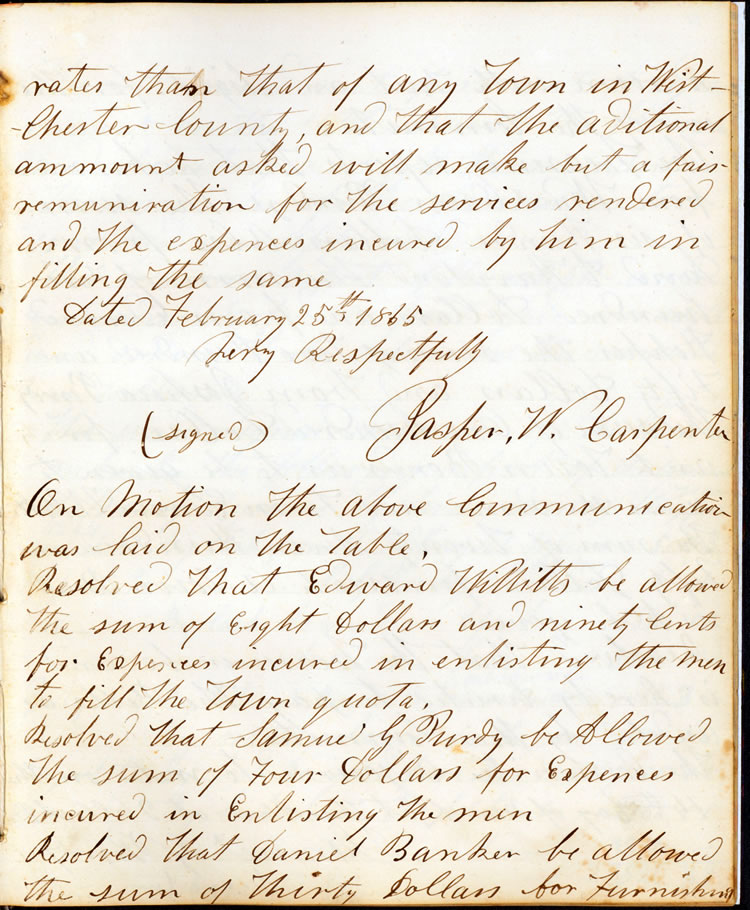 rates than that of any Town in West-
-Chester County, and that the aditional
ammount asked will make but a fair
remuniration for the services rendered
and the expences incured by him in
filling the same
Dated February 25th 1865
Very Respectfully
(signed) Jasper, W. Carpenter
On Motion the above Communication
was laid on the Table,
Resolved that Edward Willitts be allowed
the sum of Eight Dollars and ninety Cents
for Expences incured in enlisting the men
to fill the Town quota,
Resolved that Samuel G Purdy be Allowed
the sum of Four Dollars for Expences
incured in Enlisting the men
Resolved that Daniel Banker be allowed
the sum of Thirty Dollars for Furnishing